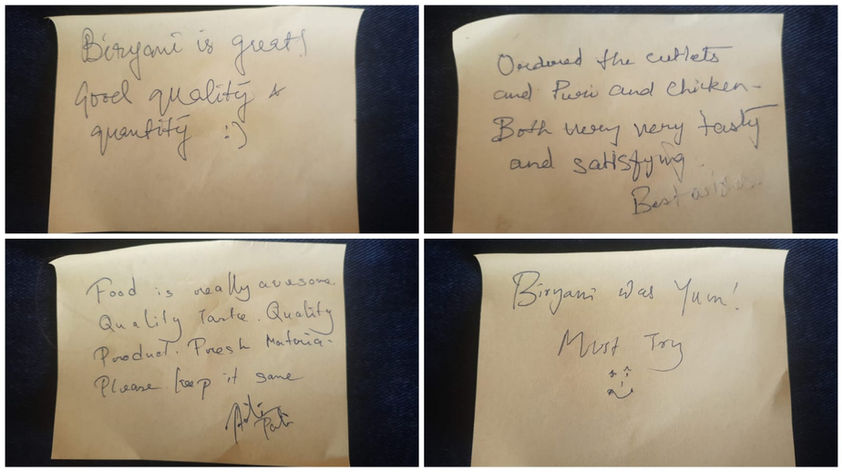 Biryani is great!
Good quality &
quantity :)
Ordered the cutlets
and Puri and chicken -
Both very very tasty
and satisfying.
Best wishes.
Food is really awesome.
Quality Taste. Quality
Product. Fresh Materia-
Please keep it same
Biryani was Yum!
Must Try